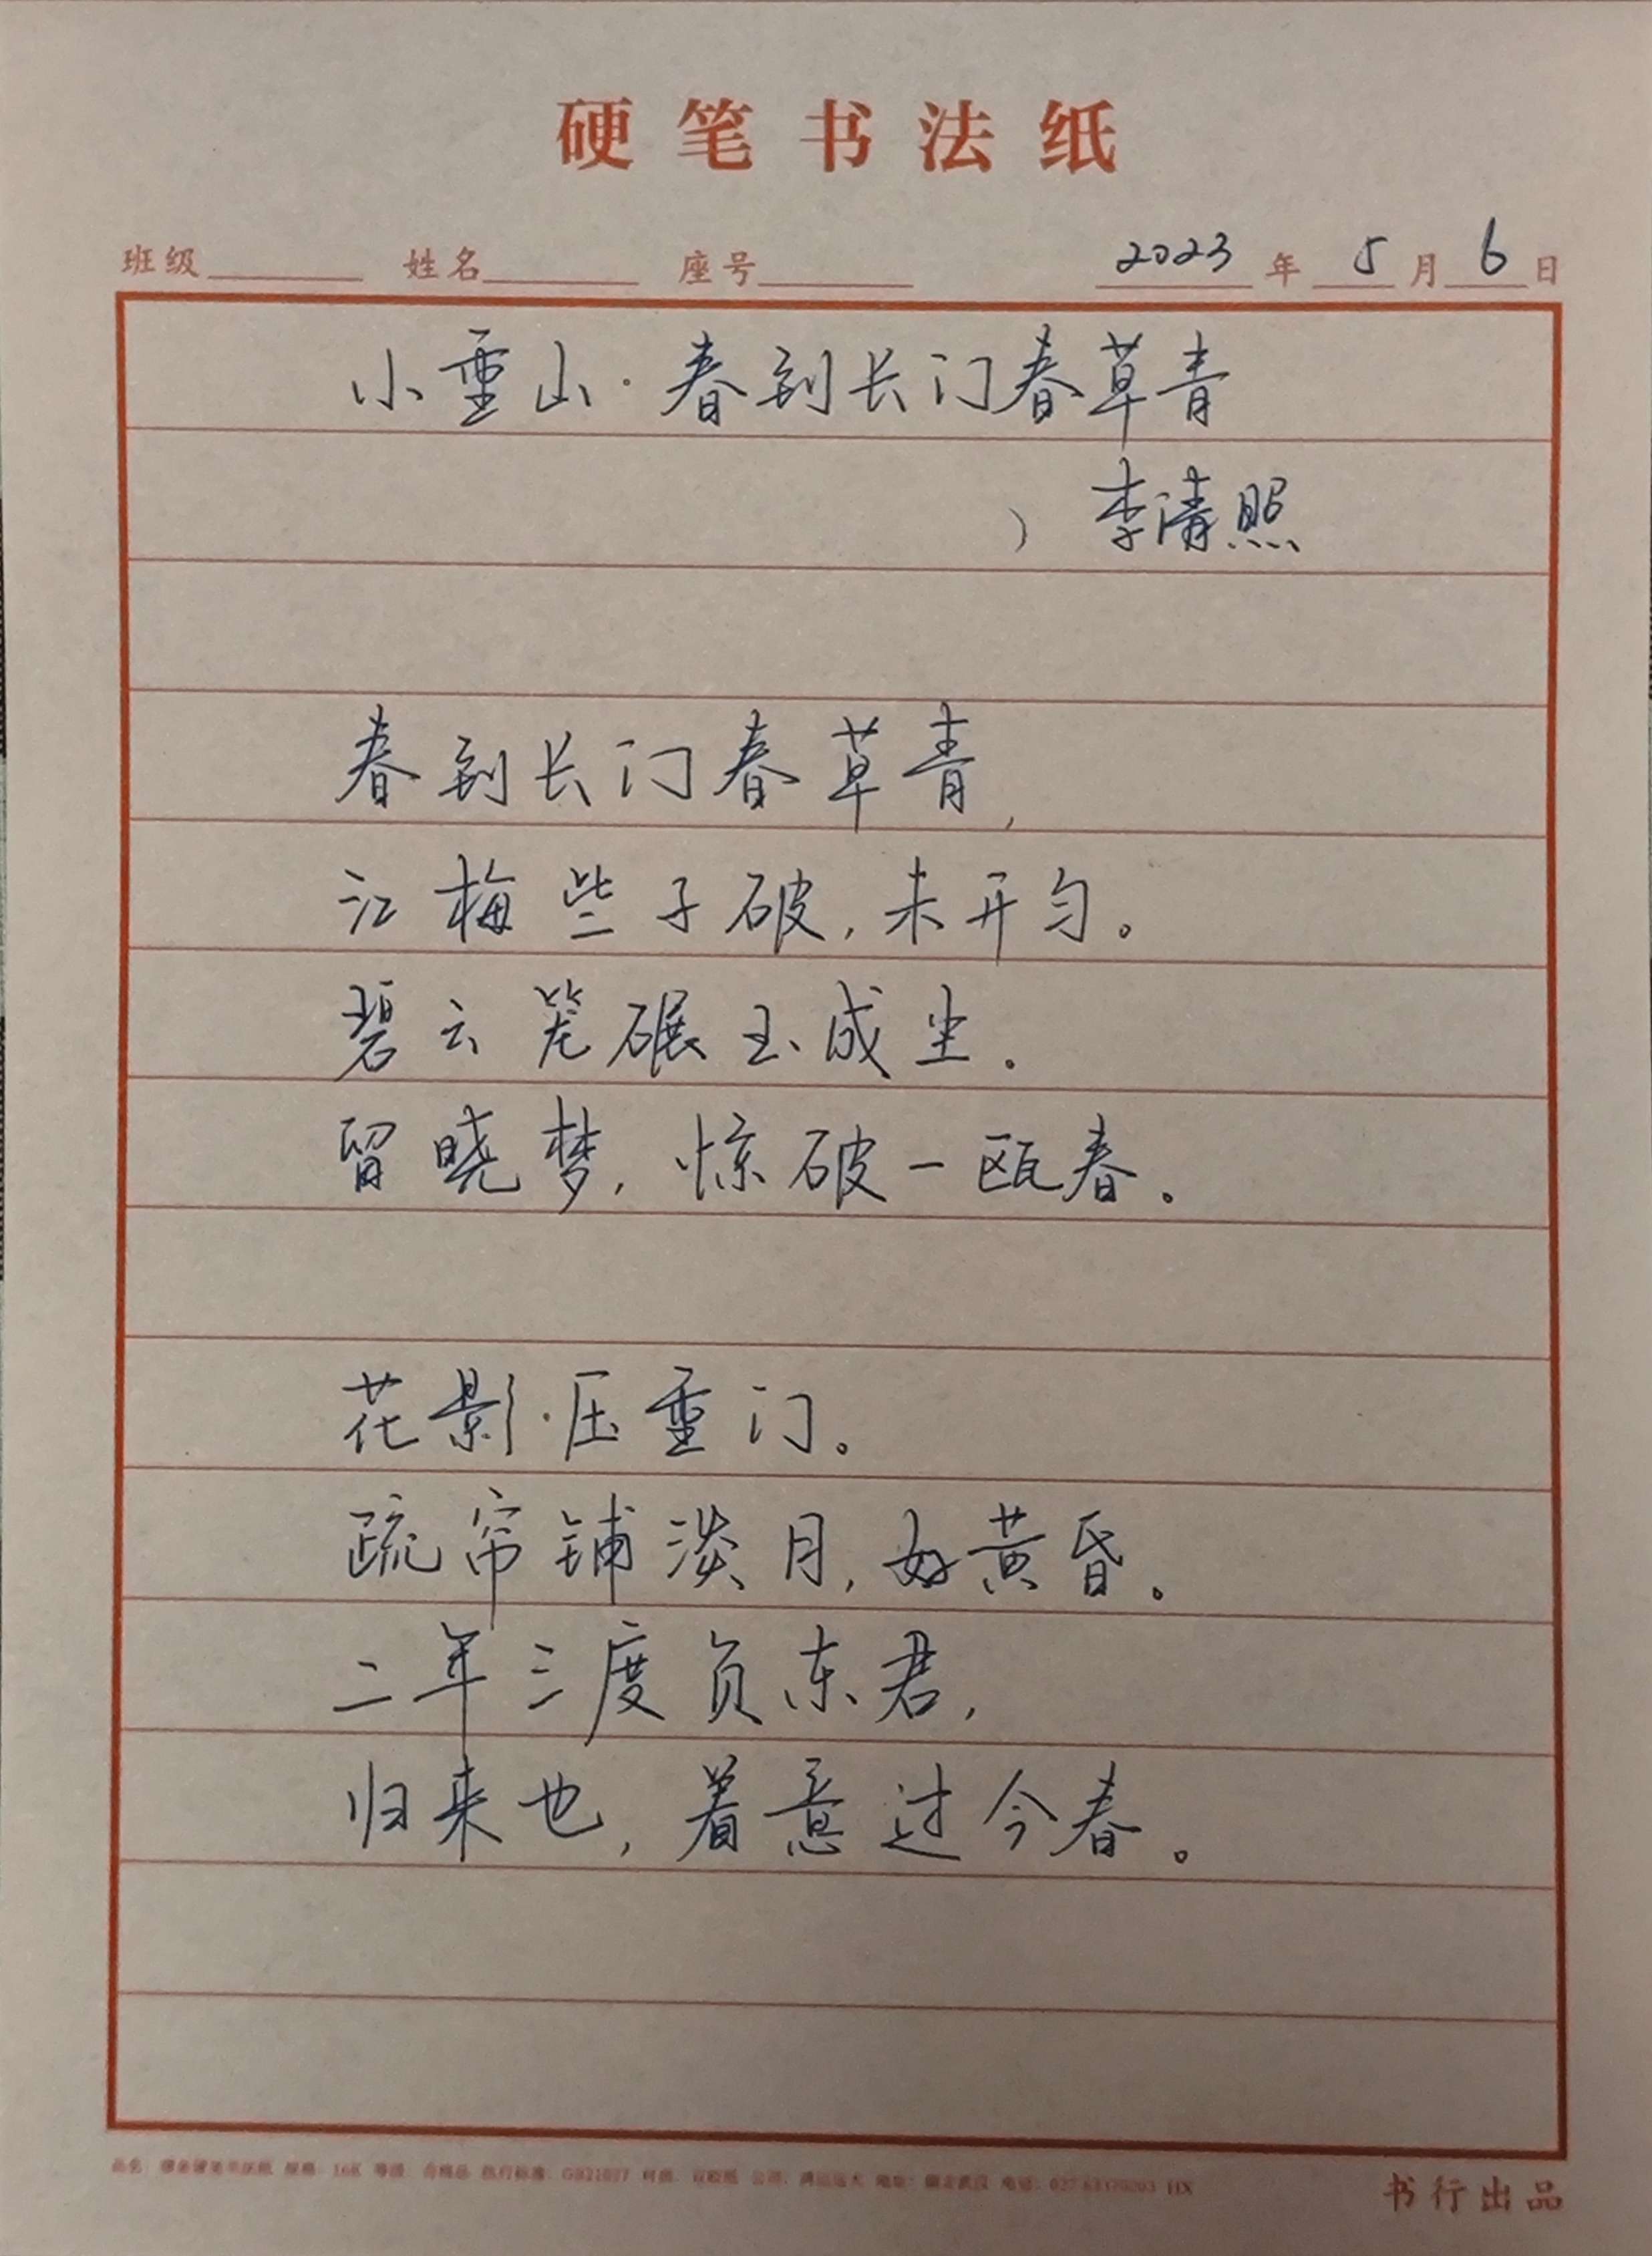 硬笔书法纸
班级 姓名 座号 2023 年 5 月 6 日
小重山·春到长门春草青
李清照
春到长门春草青,
江梅些子破,未开匀。
碧云笼碾玉成尘。
留晓梦,惊破一瓯春。
花影·压重门。
疏帘铺淡月,好黄昏。
二年三度负东君,
归来也,着意过今春。
书行出品